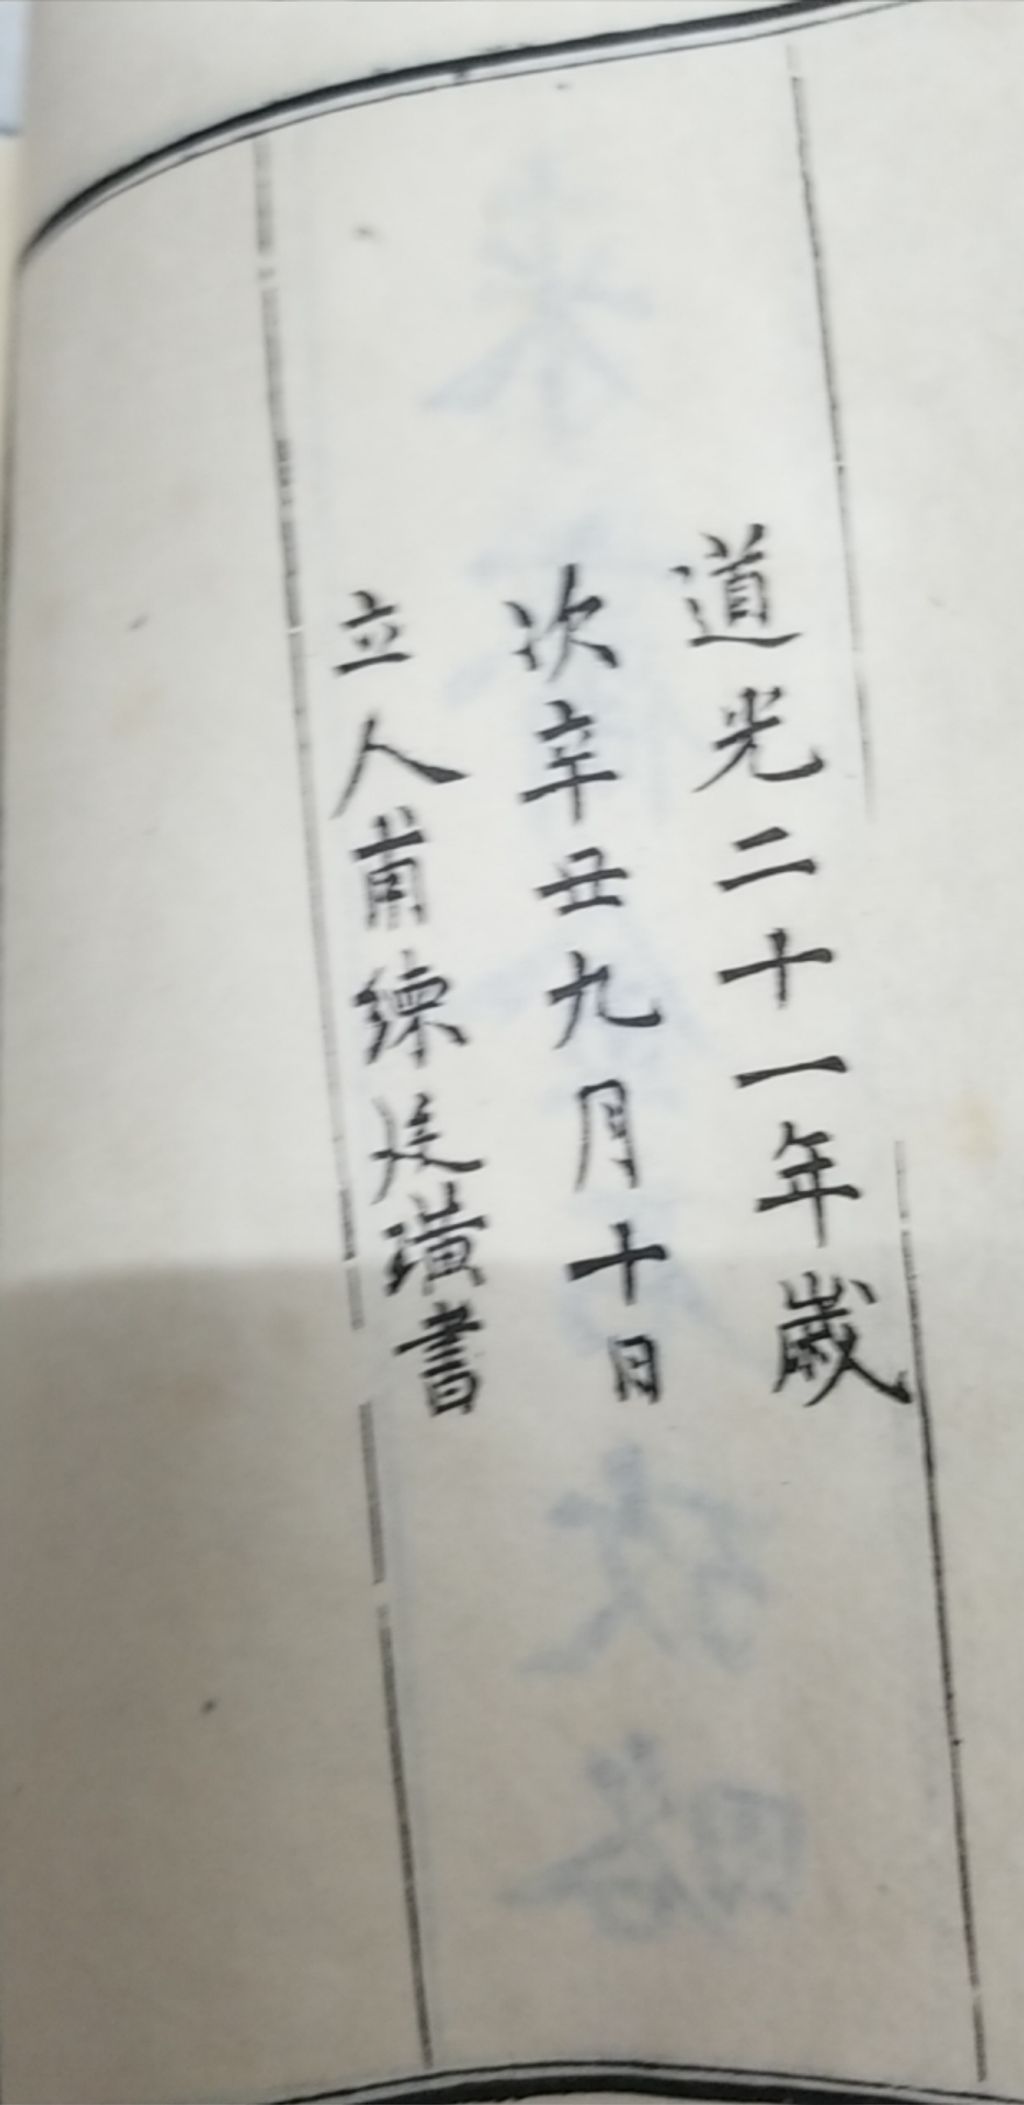 道光二十一年歲
次辛丑九月十日
立人甫練廷璜書